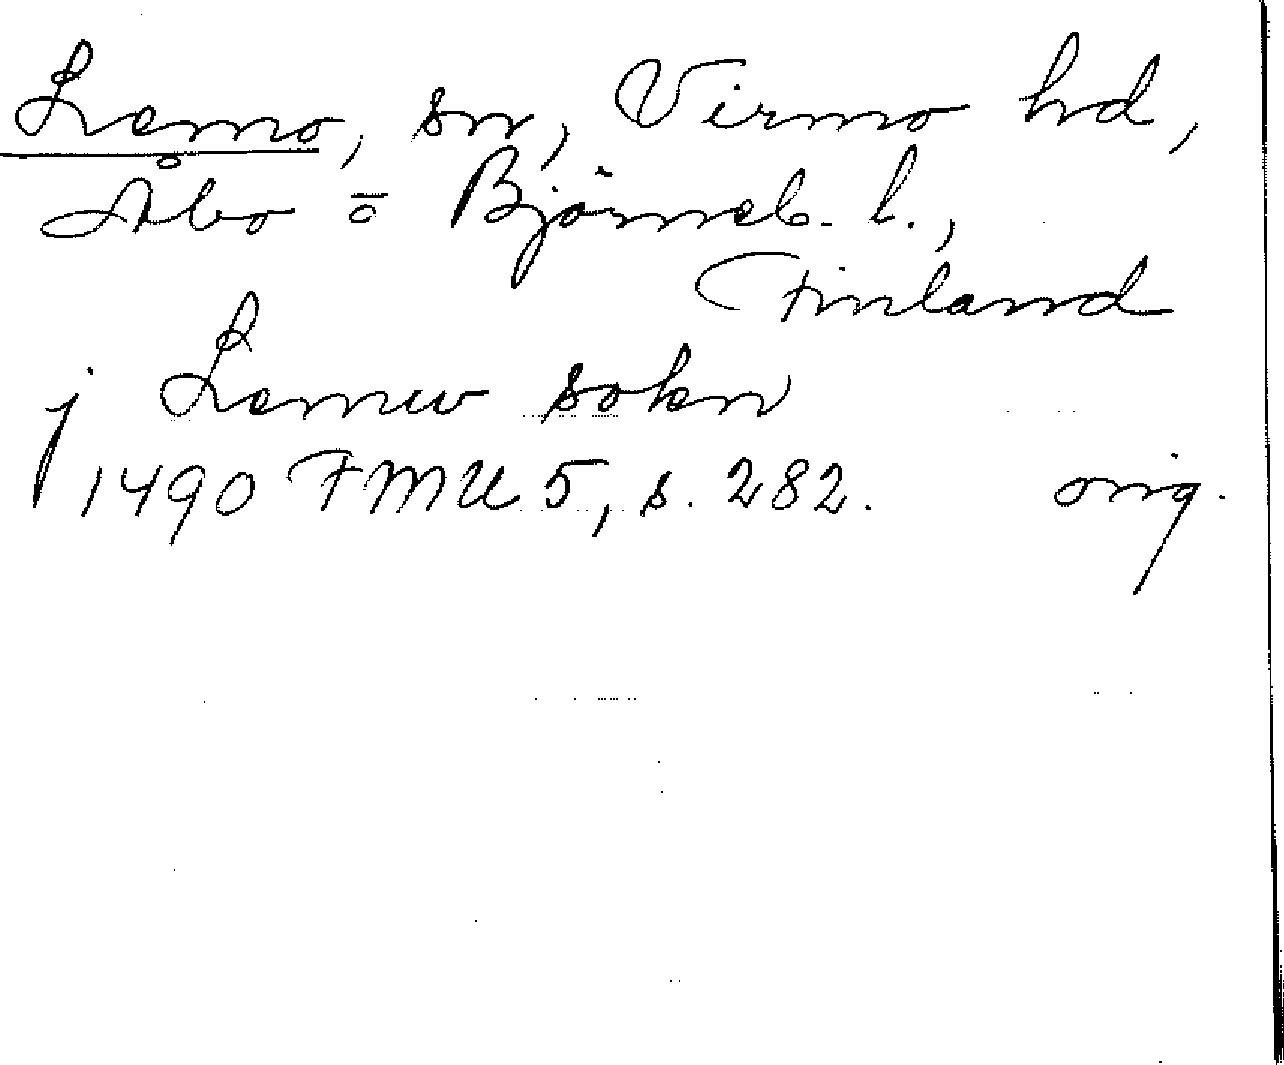 Lemo, sn, Virmo hd,
Åbo ō Björneb. l.,
Finland
j Lemw sokn
1490 FMU 5, s. 282. orig.